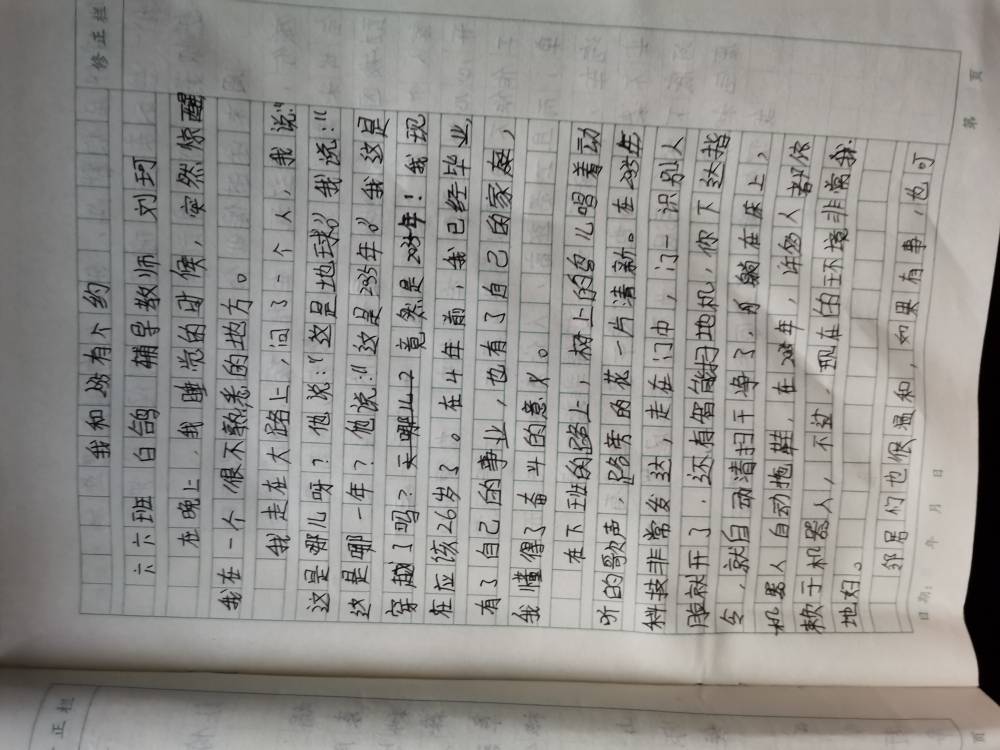 修正栏
我和2035有个约
六六班 白鸽 辅导教师 刘珂
在晚上,我睡觉的时候,突然惊醒
我在一个很不熟悉的地方。
我走在大路上,问了一个人,我说:“
这是哪儿呀?他说:“这是地球。”我说:“
这是哪一年?他说:“这是2035年。”我这是
穿越了吗?竟然是2035年!我现
在应该26岁了。在4年前,我已经毕业,
有了自己的事业,也有了自己的家庭,
我懂得了奋斗的意义。
在下班的路上,树上的鸟儿唱着动
听的歌声,路旁的花一片清新。在2035年
科技非常发达,走在门巾,门一识别人
脸就开了,还有智能扫地机,你下达指
令,就自动清扫干净了,躺在床上,
机器人自动拖鞋,在2035年,许多人都依
赖于机器人,不过,现在的环境非常我
地好。
邻居们也很温和,如果有事,也可
日期: 年 月 日
第 页
正栏
页